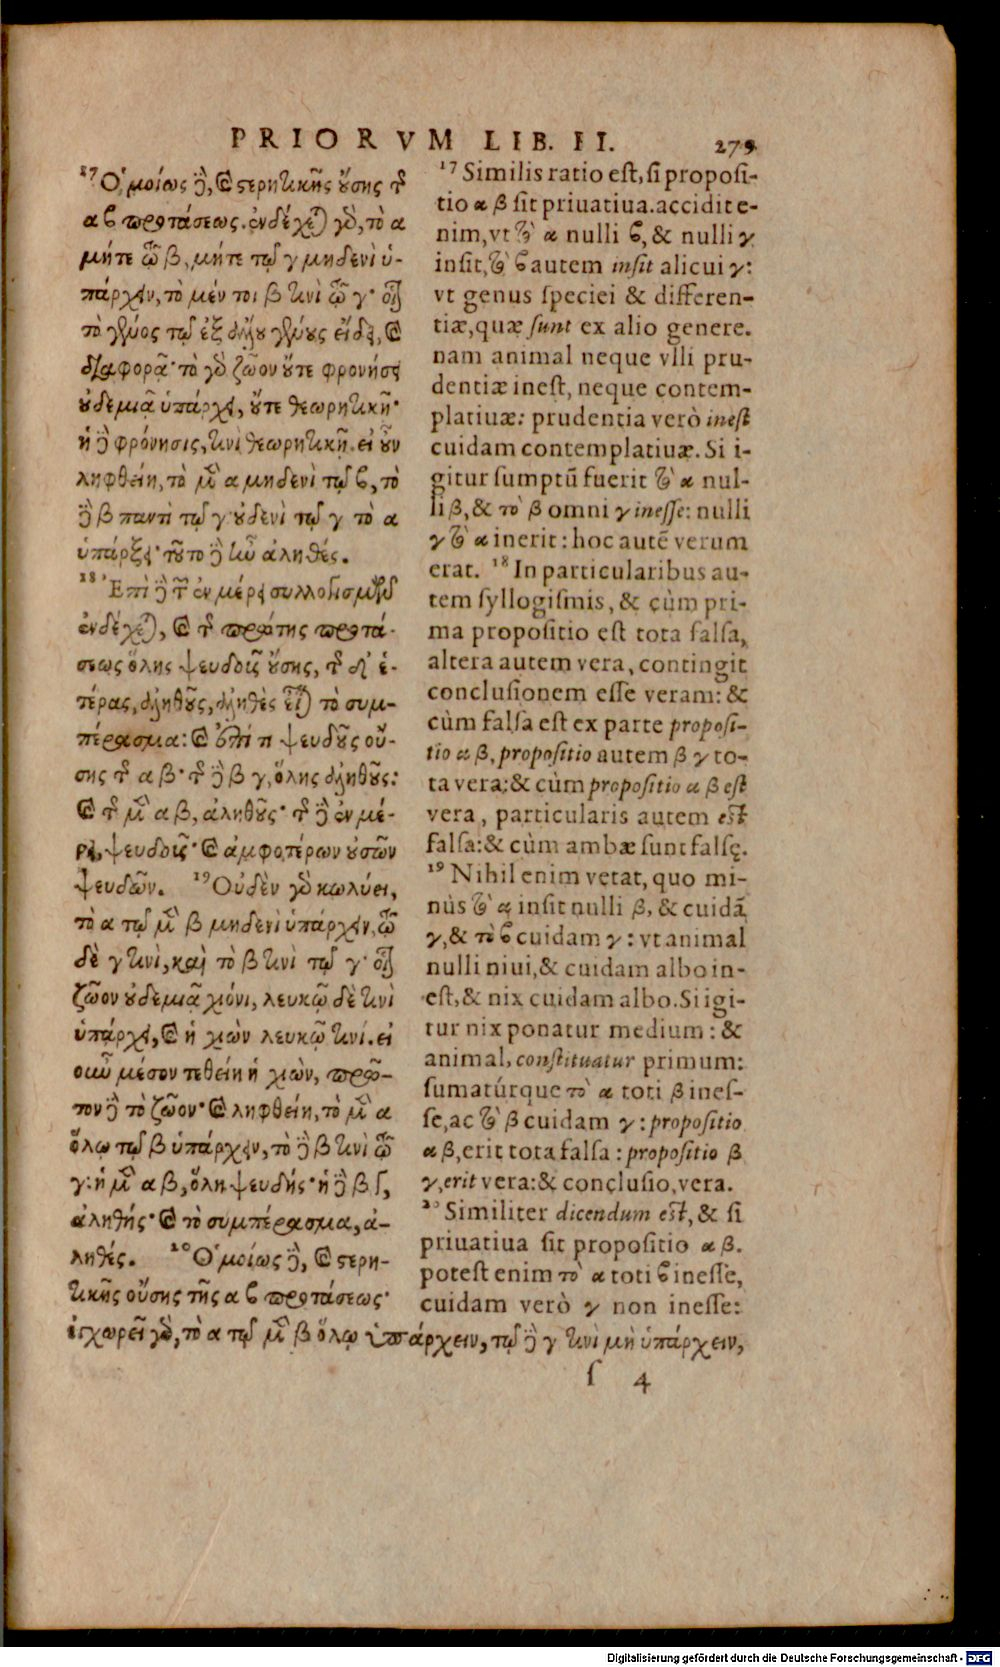 PRIORVM LIB. II. 279
17 Ὁμοίως δὲ, καὶ στερητικῆς οὔσης τῆς
α β προτάσεως. ἐνδέχεται γὰρ, τὸ α
μήτε τῷ β, μήτε τῷ γ μηδενὶ ὑ-
πάρχειν, τὸ μέν τοι β τινὶ τῷ γ· οἷον
τὸ γένος τῷ ἐξ ἄλλου γένους εἴδει, καὶ
διαφορᾷ· τὸ γὰρ ζῶον οὔτε φρονήσει
οὐδεμιᾷ ὑπάρχει, οὔτε θεωρητικῇ·
ἡ δὲ φρόνησις, τινὶ θεωρητικῇ. εἰ οὖν
ληφθείη, τὸ μὲν α μηδενὶ τῷ β, τὸ
δὲ β παντὶ τῷ γ· οὐδενὶ τῷ γ τὸ α
ὑπάρξει· τοῦτο δὲ ἦν ἀληθές.
18 Ἐπὶ δὲ τῶν ἐν μέρει συλλογισμῶν
ἐνδέχεται, καὶ τῆς πρώτης προτά-
σεως ὅλης ψευδοῦς οὔσης, τῆς δ' ἑ-
τέρας, ἀληθοῦς, ἀληθὲς εἶναι τὸ συμ-
πέρασμα: καὶ ἐπί τι ψευδοῦς οὔ-
σης τῆς α β· τῆς δὲ β γ, ὅλης ἀληθοῦς:
καὶ τῆς μὲν α β, ἀληθοῦς· τῆς δὲ ἐν μέ-
ρει, ψευδοῦς· καὶ ἀμφοτέρων οὐσῶν
ψευδῶν. 19 Οὐδὲν γὰρ κωλύει,
τὸ α τῷ μὲν β μηδενὶ ὑπάρχειν, τῷ
δὲ γ τινὶ, καὶ τὸ β τινὶ τῷ γ· οἷον
ζῶον οὐδεμιᾷ χιόνι, λευκῷ δὲ τινὶ
ὑπάρχει, καὶ ἡ χιὼν λευκῷ τινί. εἰ
οὖν μέσον τεθείη ἡ χιὼν, πρῶ-
τον δὲ τὸ ζῶον· καὶ ληφθείη, τὸ μὲν α
ὅλῳ τῷ β ὑπάρχειν, τὸ δὲ β τινὶ τῷ
γ: ἡ μὲν α β, ὅλη ψευδής· ἡ δὲ β γ,
ἀληθής· καὶ τὸ συμπέρασμα, ἀ-
ληθές. 20 Ὁμοίως δὲ, καὶ στερη-
τικῆς οὔσης τῆς α β προτάσεως·
ἐγχωρεῖ γὰρ, τὸ α τῷ μὲν β ὅλῳ ὑπάρχειν, τῷ δὲ γ τινὶ μὴ ὑπάρχειν,
17 Similis ratio est, si proposi-
tio α β sit priuatiua. accidit e-
nim, vt τὸ α nulli β, & nulli γ
insit, τὸ β autem insit alicui γ:
vt genus speciei & differen-
tiæ, quæ sunt ex alio genere.
nam animal neque vlli pru-
dentiæ inest, neque contem-
platiuæ: prudentia verò inest
cuidam contemplatiuæ. Si i-
gitur sumptū fuerit τὸ α nul-
li β, & τὸ β omni γ inesse: nulli
γ τὸ α inerit: hoc autē verum
erat. 18 In particularibus au-
tem syllogismis, & cùm pri-
ma propositio est tota falsa,
altera autem vera, contingit
conclusionem esse veram: &
cùm falsa est ex parte proposi-
tio α β, propositio autem β γ to-
ta vera: & cùm propositio α β est
vera, particularis autem est
falsa: & cùm ambæ sunt falsę.
19 Nihil enim vetat, quo mi-
nùs τὸ α insit nulli β, & cuidā
γ, & τὸ β cuidam γ: vt animal
nulli niui, & cuidam albo in-
est, & nix cuidam albo. Si igi-
tur nix ponatur medium: &
animal, constituatur primum:
sumatúrque τὸ α toti β ines-
se, ac τὸ β cuidam γ: propositio
α β, erit tota falsa: propositio β
γ, erit vera: & conclusio, vera.
20 Similiter dicendum est, & si
priuatiua sit propositio α β.
potest enim τὸ α toti β inesse,
cuidam verò γ non inesse:
ſ 4
Digitalisierung gefördert durch die Deutsche Forschungsgemeinschaft - DFG